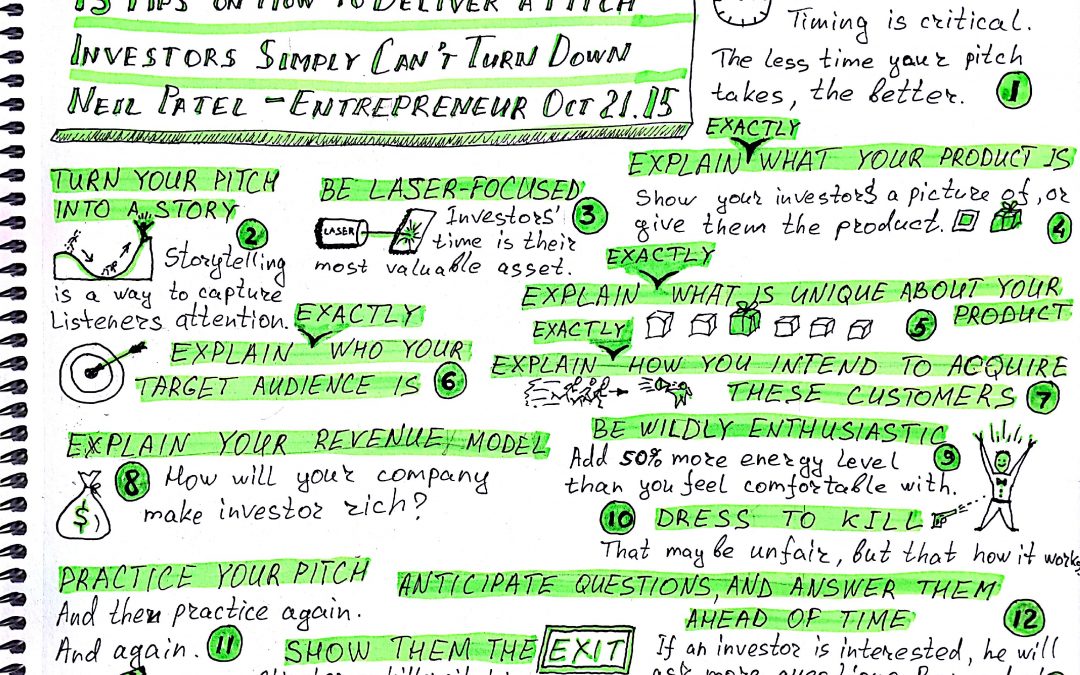 13 TIPS ON HOW TO DELIVER A PITCH
INVESTORS SIMPLY CAN'T TURN DOWN
NEIL PATEL – ENTREPRENEUR OCT 21.15
Timing is critical.
The less time your pitch
takes, the better. 1
TURN YOUR PITCH
INTO A STORY
2
Storytelling
is a way to capture
Listeners attention.
BE LASER-FOCUSED
3
LASER
Investors'
time is their
most valuable asset.
EXACTLY
EXPLAIN WHAT YOUR PRODUCT IS
Show your investors a picture of, or
give them the product. 4
EXACTLY
EXPLAIN WHAT IS UNIQUE ABOUT YOUR
PRODUCT
5
EXACTLY
EXPLAIN WHO YOUR
TARGET AUDIENCE IS 6
EXACTLY
EXPLAIN HOW YOU INTEND TO ACQUIRE
THESE CUSTOMERS 7
EXPLAIN YOUR REVENUE MODEL
8 How will your company
make investor rich?
$
BE WILDLY ENTHUSIASTIC
9
Add 50% more energy level
than you feel comfortable with.
10 DRESS TO KILL
That may be unfair, but that how it works
PRACTICE YOUR PITCH
And then practice again.
And again. 11
ANTICIPATE QUESTIONS, AND ANSWER THEM
AHEAD OF TIME 12
If an investor is interested, he will
ask more questions
SHOW THEM THE EXIT